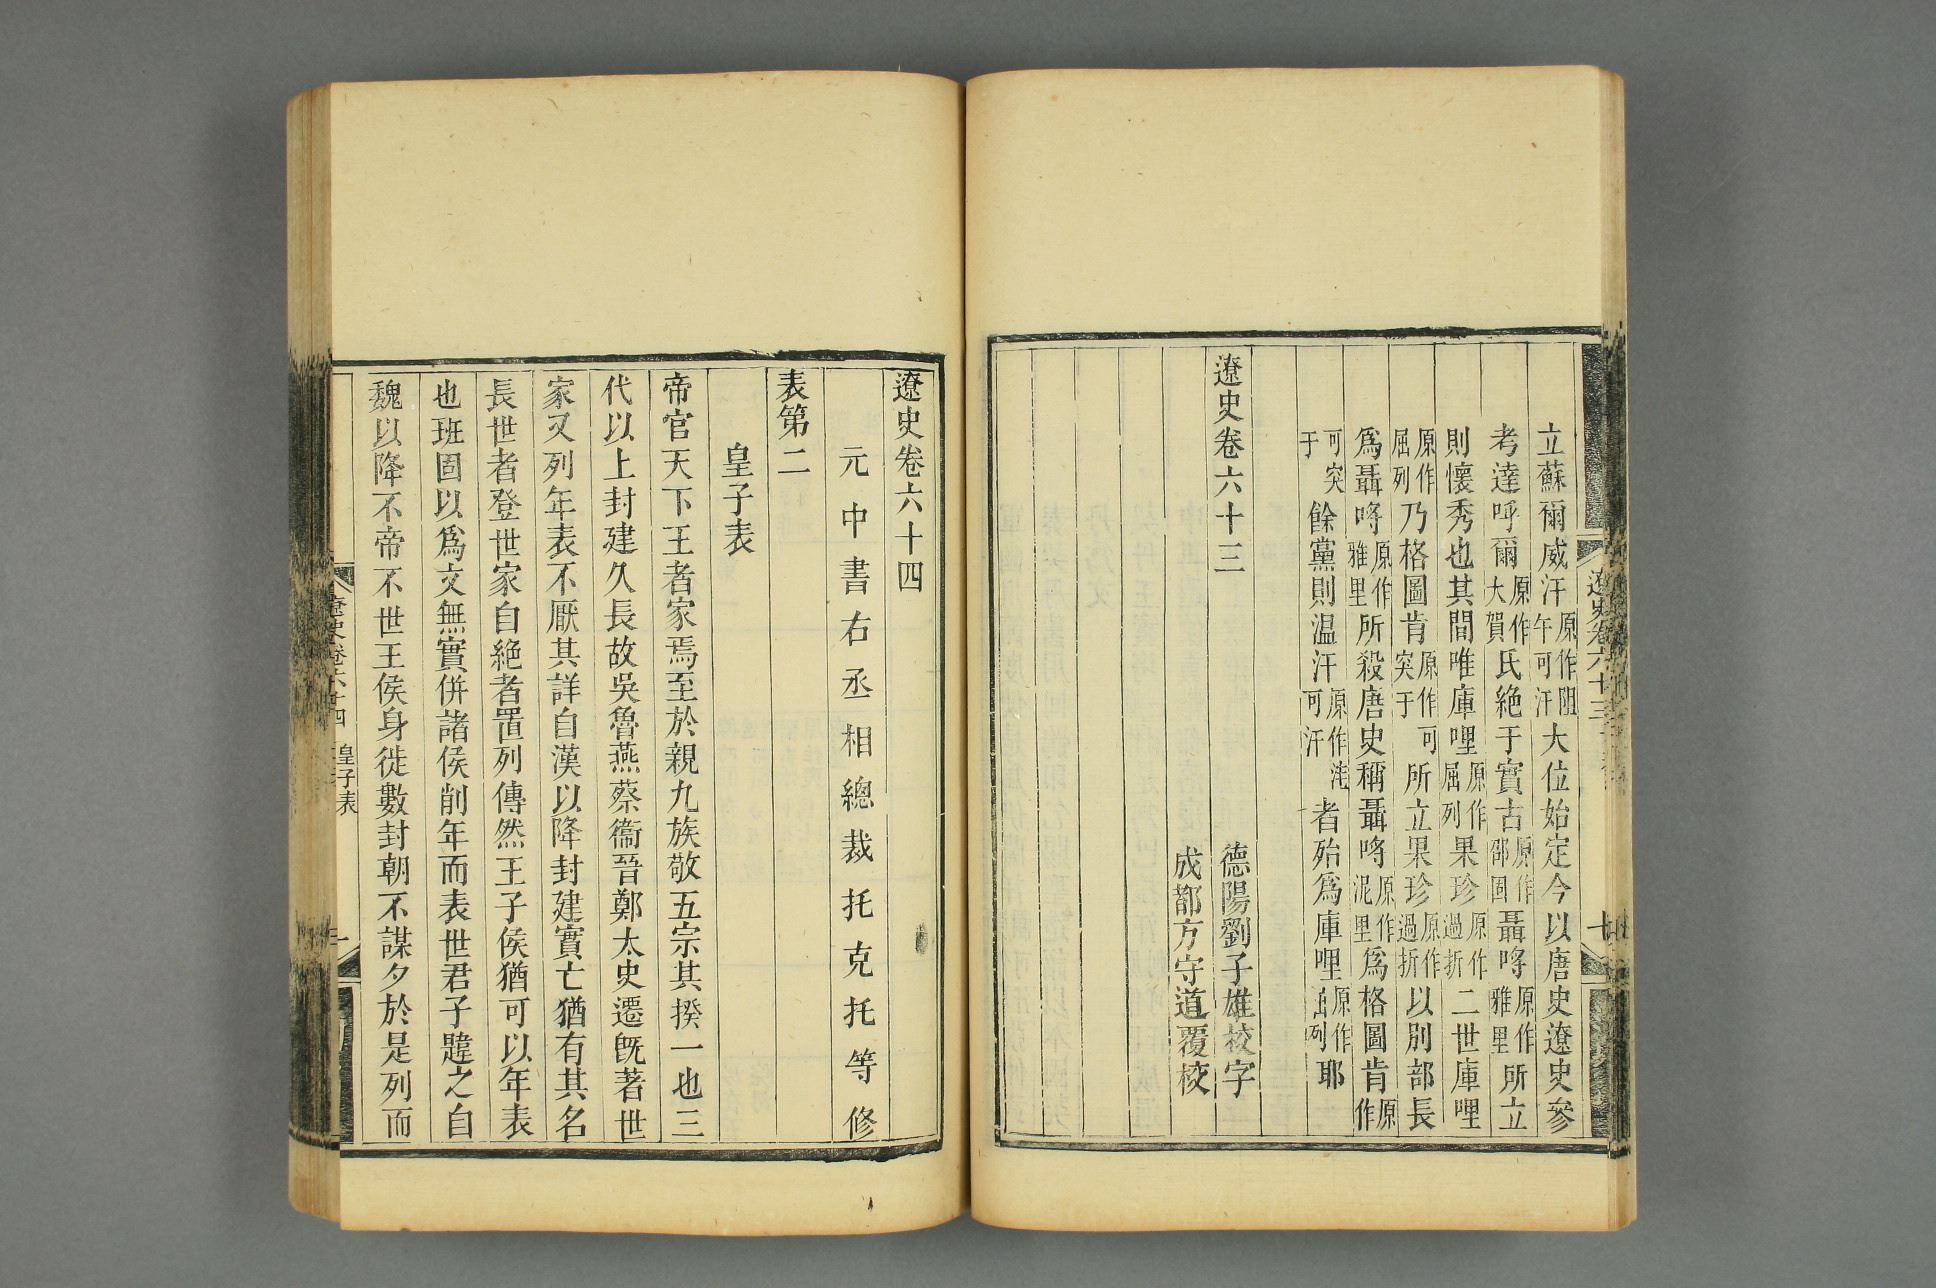 遼史卷六十三
立蘇爾威汗原作阻午可汗大位始定今以唐史遼史參
考達呼爾原作大賀氏絕于實古原作邵固聶哷原作雅里所立
則懷秀也其間唯庫哩原作屈列果珍原作過折二世庫哩
原作屈列乃格圖肯原作可突于所立果珍原作過折以別部長
爲聶哷原作雅里所殺唐史稱聶哷原作泥里爲格圖肯原作
可突于餘黨則温汗原作洼可汗者殆爲庫哩原作屈列耶
遼史卷六十三
德陽劉子雄校字
成都方守道覆校
遼史卷六十四
元中書右丞相總裁托克托等修
表第二
皇子表
帝官天下王者家焉至於親九族敬五宗其揆一也三
代以上封建久長故吳魯燕蔡衞晉鄭太史遷旣著世
家又列年表不厭其詳自漢以降封建實亡猶有其名
長世者登世家自絕者置列傳然王子侯猶可以年表
也班固以爲文無實併諸侯削年而表世君子韙之自
魏以降不帝不世王侯身徙數封朝不謀夕於是列而
遼史卷六十四 皇子表 一